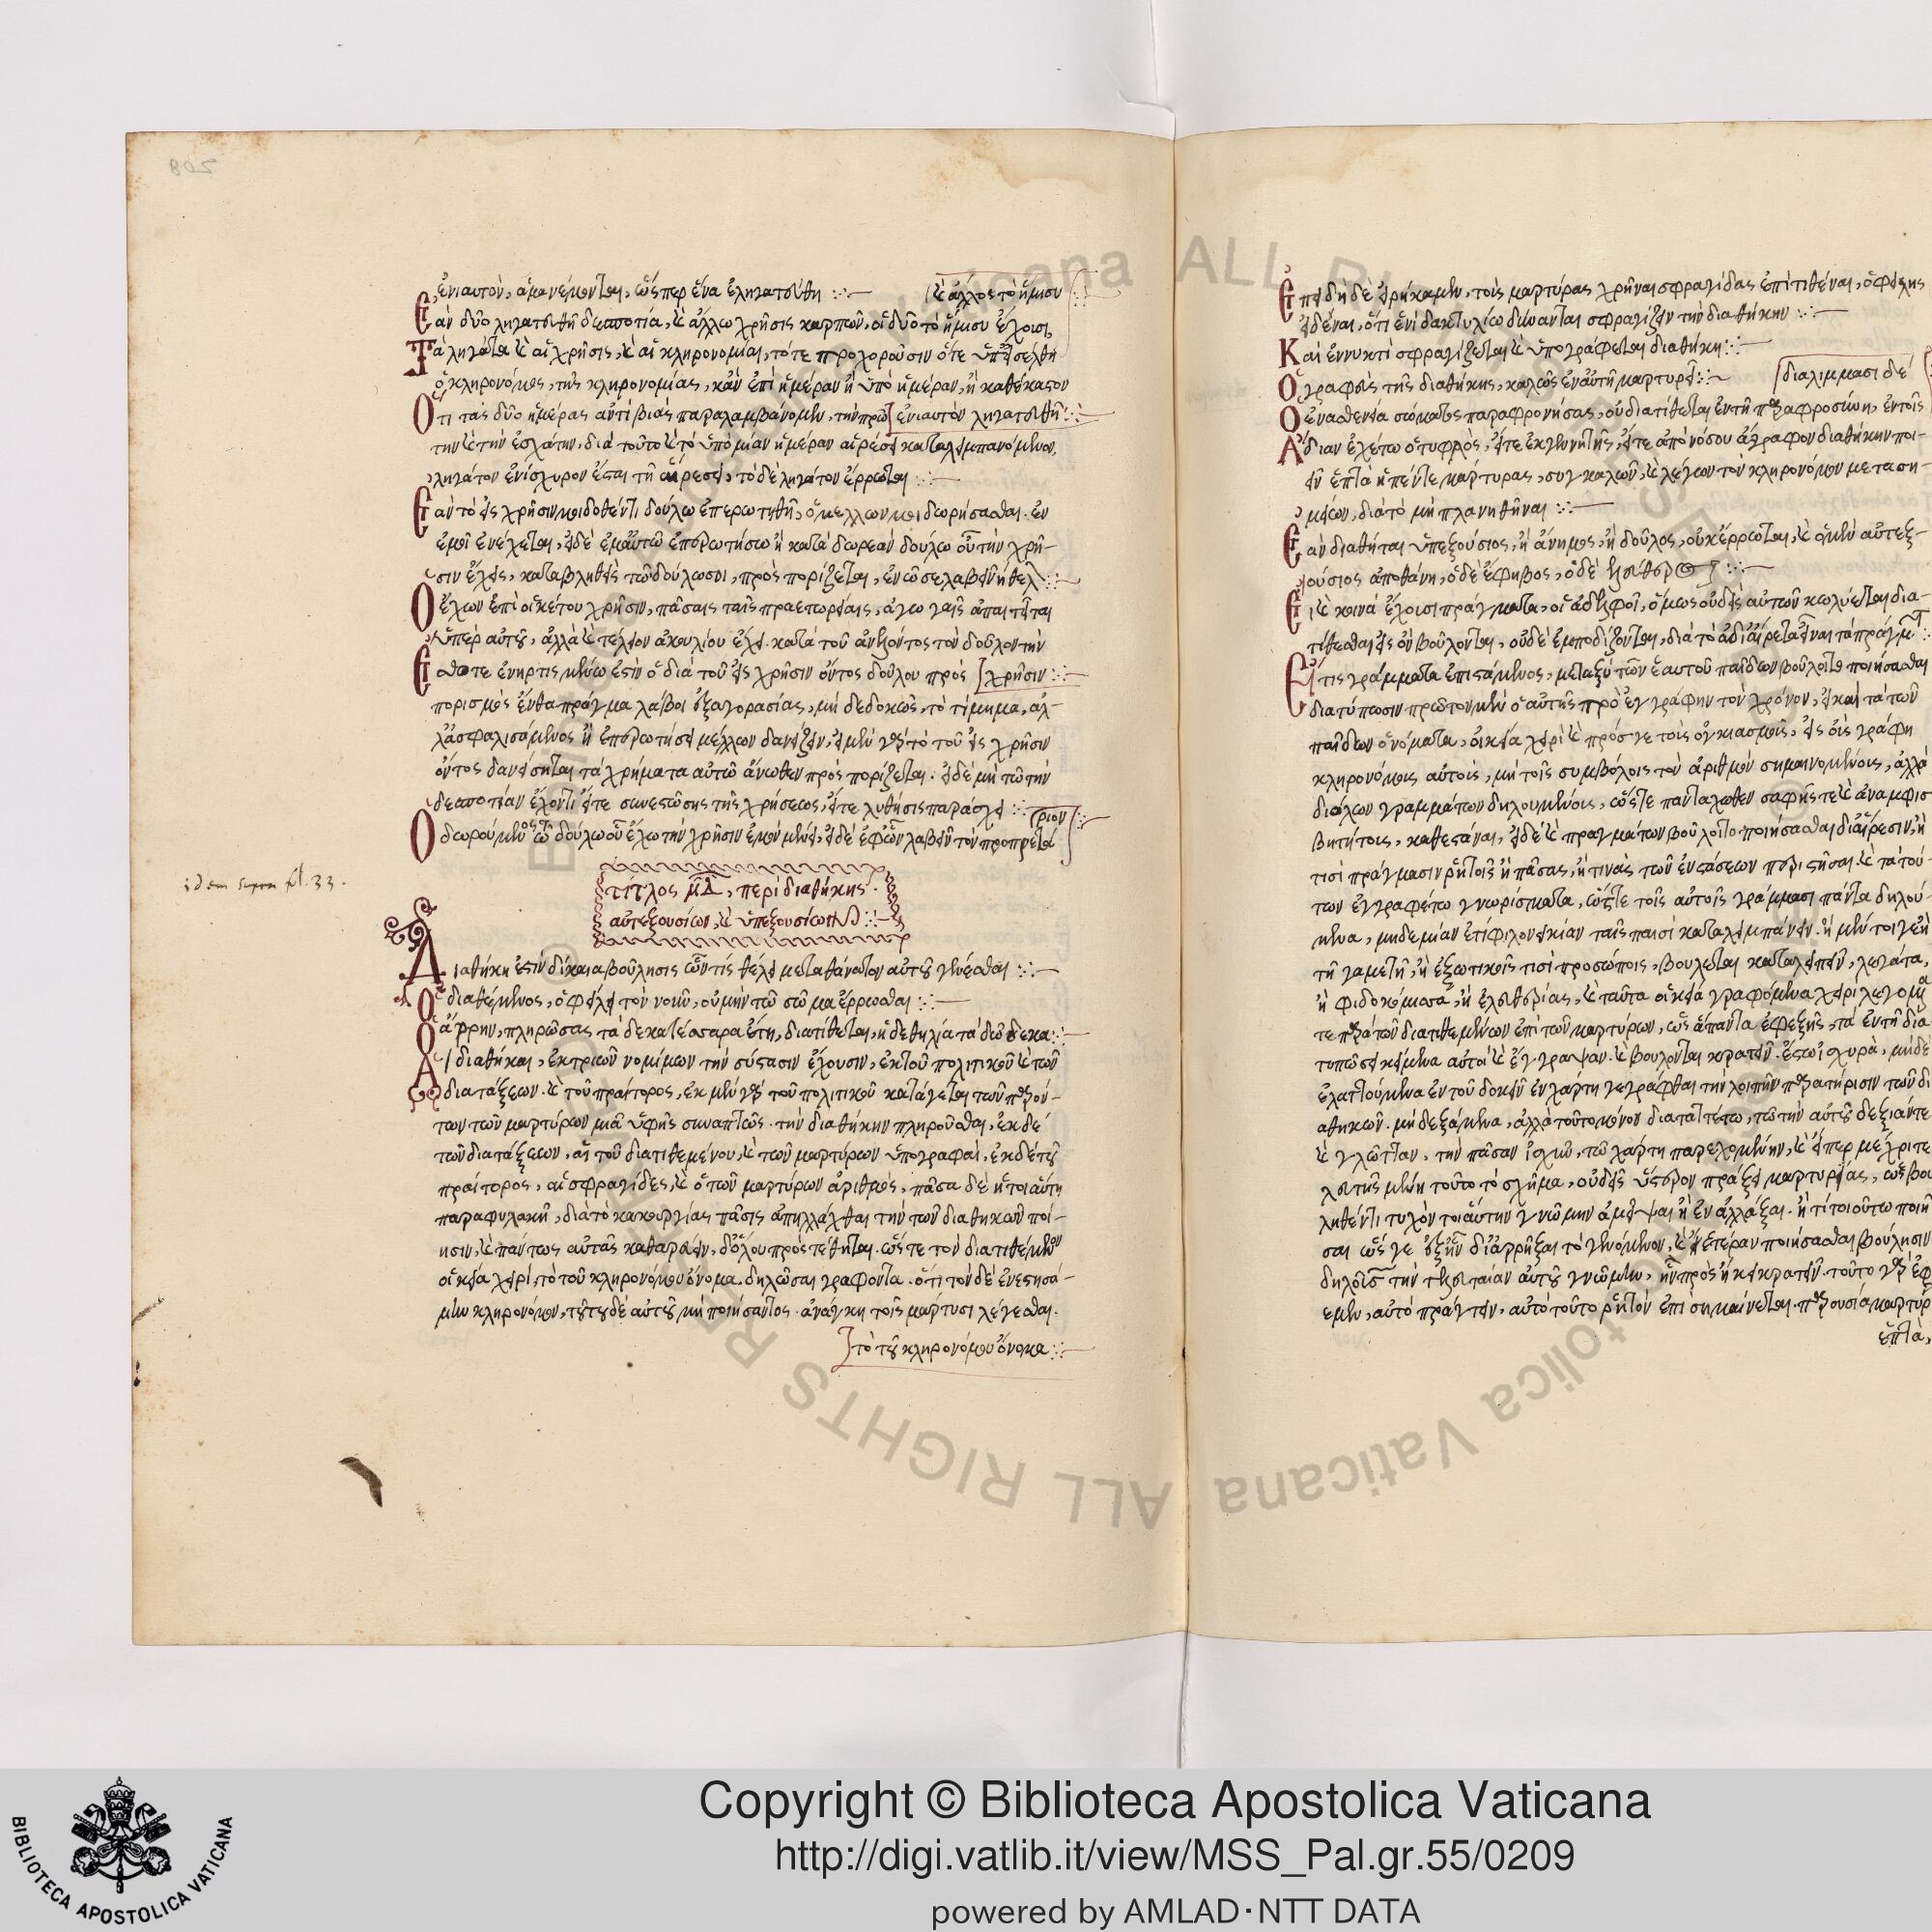 ἐνιαυτὸν, ἅμα νέμονται, ὥσπερ ἕνα ἐληγατεύθη
καὶ ἄλλος τὸ ἥμισυ
Ἐὰν δύο ληγατευθῆ δεσποτία, καὶ ἄλλω χρῆσις καρπῶν, οἱ δύο τὸ ἥμισυ ἔχουσι,
Τὰ ληγάτα καὶ αἱ χρήσις, καὶ αἱ κληρονομίαι, τότε προχοροῦσιν ὅτε ὑπεισέλθη
ὁ κληρονόμος, τῆς κληρονομίας, κἂν ἐπὶ ἡμέραν ἢ ὑπὸ ἡμέραν, ἢ καθέκαστον
ἐνιαυτὸν ληγατευθῆ
Ὅτι τὰς δύο ἡμέρας ἀντὶ βιὰς παραλαμβάνομεν, τὴν πρώ
την καὶ τὴν ἐσχάτην, διὰ τοῦτο καὶ τὸ ὑπὸ μίαν ἡμέραν αἱρέσει καταλειμπανόμενον,
ληγάτον ἐνίσχυρον ἔσται τῆ αἱρέσει, τὸ δὲ ληγάτον ἔρρωται
Ἐὰν τὸ εἰς χρῆσιν μοι δοθέντι δούλω ἐπερωτηθῆ, ὁ μέλλων μοι δωρήσασθαι. ἐν
ἐμοὶ ἐνέχεται, εἰ δὲ ἐμαυτῶ ἐπερωτήσω ἢ κατὰ δωρεὰν δούλω οὗ τὴν χρῆ-
σιν ἔχεις, καταβληθεὶς τῶ δούλω σοι, προσπορίζεται, ἐν ὧ σε λαβεῖν ἤθελ
Ὁ ἔχων ἐπὶ οἰκέτου χρῆσιν, πᾶσαις ταῖς πραετωρίαις, ἀγωγαῖς ἀπαιτεῖται
ὑπὲρ αὐτοῦ, ἀλλὰ καὶ τέλειον ἀκουλίου ἔχει. κατὰ τοῦ ἀνελόντος τὸν δοῦλον τὴν
χρῆσιν
ὁ διὰ τοῦ εἰς χρῆσιν ὄντος δούλου προς
πορισμὸς ἔνθα πράγμα λάβοι ἐξ ἀγορασίας, μὴ δεδοκὼς, τὸ τίμημα, ἀλ-
λὰ ἀσφαλισάμενος ἢ ἐπερωτήσει μέλλων δανείζειν, εἰ μὲν γὰρ τὸ τοῦ εἰς χρῆσιν
ὄντος δανείσηται τὰ χρήματα αὐτῶ ἄνωθεν προσπορίζεται. εἰ δὲ μὴ τῶ τὴν
δεσποτίαν ἔχοντι εἴτε συνεστώσης τῆς χρήσεως, εἴτε λυθήσις παράσχει
ριον
Ὁ δωρούμενος τῶ δούλω οὗ ἔχω τὴν χρῆσιν ἐμὸν μένει, εἰ δὲ ἐφ' ὧν λαβεῖν τὸν προπρετά
idem supra fol. 33.
τίτλος μδ, περὶ διαθήκης
αὐτεξουσίων, καὶ ὑπεξουσίων
Διαθήκη ἐστὶν δίκαια βούλησις ὧν τίς θέλει μετὰ θάνατον αὐτοῦ γενέσθαι
Ὁ διαθέμενος, ὀφείλει τὸν νοῦν, οὐ μὴν τῶ σῶμα ἔρρωσθαι
Ὁ ἄρρην, πληρώσας τὰ δεκατέσσαρα ἔτη, διατίθεται, ἡ δὲ θηλία τὰ δώδεκα
Αἱ διαθῆκαι, ἐκ τριῶν νομίμων τὴν σύστασιν ἔχουσιν, ἐκ τοῦ πολιτικοῦ καὶ τῶν
διατάξεων. καὶ τοῦ πραίτορος, ἐκ μὲν γὰρ τοῦ πολιτικοῦ κατάγεται τῶν παρόν-
των τῶν μαρτύρων μιᾶ ὑφῆς συναπτῶς. τὴν διαθήκην πληροῦσθαι, ἐκ δέ
τῶν διατάξεων, αἱ τοῦ διατιθεμένου, καὶ τῶν μαρτύρων ὑπογραφαὶ, ἐκ δὲ τοῦ
πραίτορος, αἱ σφραγίδες, καὶ ὁ τῶν μαρτύρων ἀριθμὸς, πᾶσα δὲ ἡ τοιαύτη
παραφυλακὴ, διὰ τὸ κακουργίας πᾶσις ἀπηλλάχθαι τὴν τῶν διαθηκῶν ποί-
ησιν, καὶ πάντως αὐτὰς καθαρεύειν, δόλου προστέθηται. ὥστε τὸν διατιθέμενον
οἰκεία χειρὶ, τὸ τοῦ κληρονόμου ὄνομα. δηλῶσαι γράφοντα. ὅτι τὸν δὲ ἐνεστησά-
μην κληρονόμον, τούτου δὲ αὐτοῦ μὴ ποιήσαντος. ἀνάγκη τοῖς μάρτυσι λέγεσθαι.
τὸ τοῦ κληρονόμου ὄνομα
Ἐπειδὴ δὲ εἰρήκαμεν, τοὺς μαρτύρας χρῆναι σφραγίδας ἐπιτιθέναι, ὀφείλης
εἰδέναι, ὅτι ἑνὶ δακτυλίω δύνανται σφραγίζειν τὴν διαθήκην
Καὶ ἐν νυκτὶ σφραγίζεται καὶ ὑπογράφεται διαθήκη
Ὁ γραφεὺς τῆς διαθήκης, καλῶς ἐν αὐτῆ μαρτυρεῖ
διαλίμμασι δέ
Ὁ ἐν ἀσθενεία σώματος παραφρονήσας, οὐ διατίθεται ἐν τῆ παραφροσύνη, ἐν τοῖς
Ἄδιαν ἐχέτω ὁ τυφλὸς, εἴτε ἐκ γεννητῆς, εἴτε ἀπὸ νόσου ἄγραφον διαθήκην ποι-
εῖν ἑπτὰ ἢ πέντε μάρτυρας, συγκαλῶν, καὶ λέγων τὸν κληρονόμον μετὰ ση-
μείων, διὰ τὸ μὴ πλανηθῆναι
Ἐὰν διαθῆται ὑπεξούσιος, ἢ ἄνηβος, ἢ δοῦλος, οὐκ ἔρρωται, καὶ ὁ μὲν αὐτεξ-
ιούσιος ἀποθάνη, ὁ δὲ ἔφηβος, ὁ δὲ ἐλεύθερος
Εἰ καὶ κοινὰ ἔχοισι πράγματα, οἱ ἀδελφοὶ, ὅμως οὐδεὶς αὐτῶν κωλύεται δια-
τίθεσθαι εἰς ὃν βούλονται, οὐδὲ ἐμποδίζονται, διὰ τὸ ἀδιαίρετα εἶναι τὰ πράγματ
Εἴ τις γράμματα ἐπιστάμενος, μεταξὺ τῶν ἑαυτοῦ παίδων βούλοιτο ποιήσασθαι
διατύπωσιν πρῶτον μὲν ὁ αὐτῆς προεγγράφην τὸν χρόνον, εἰ καὶ τὰ τῶν
παίδων ὀνόματα, οἰκεία χειρὶ καὶ πρόσγε τοῖς οὐγκιασμοῖς, εἰς οὓς γράφη
κληρονόμοις αὐτοὺς, μὴ τοῖς συμβόλοις τὸν ἀριθμὸν σημαινομένοις, ἀλλὰ
δι' ὅλων γραμμάτων δηλουμένοις, ὥστε πανταχωθεν σαφής τε καὶ ἀναμφισ
βητήτοις, καθεστάναι, εἰ δὲ καὶ πραγμάτων βούλοιτο ποιήσασθαι διαίρεσιν, ἢ
τισὶ πράγμασιν ῥητοῖς ἢ πᾶσας, ἢ τινὰς τῶν ἐνστάσεων περιστῆσαι καὶ τὰ τού-
των ἐγγραφέτω γνωρίσματα, ὥστε τοῖς αὐτοῖς γράμμασι πάντα δηλού-
μενα, μηδεμίαν ἔτι φιλονεικίαν ταῖς παισὶ καταλειμπάνειν. ἢ μέν τοι γε ἢ
τῆ γαμετῆ, ἢ ἐξωτικοῖς τισὶ προσώποις, βουλεται καταλιπεῖν, λεγάτα,
ἢ φιδοκόμισσα, ἢ ἐλευθερίας, καὶ ταῦτα οἰκεία γραφόμενα χειρὶ λεγομενα
τε παρὰ τῶν διατιθεμένων ἐπὶ τῶν μαρτύρων, ὡς ἅπαντα ἐφεξῆς, τὰ ἐν τῆ δια
τυπώσει κείμενα αὐτοὶ καὶ ἔγγραψαν. καὶ βούλονται κρατεῖν. ἔστω ἰσχυρὰ, μηδὲ
ἐλαττούμενα ἐν τοῦ δοκεῖν ἐν χάρτη γεγράφθαι τὴν λοιπὴν παρατήρισιν τῶν δι
αθηκῶν. μὴ δεξάμενα, ἀλλὰ τοῦτο μόνον διαταττέτω, τῶ τὴν αὐτοῦ δεξιάν τε
καὶ γλῶτταν, τὴν πᾶσαν ἰσχὺν, τῶ χάρτη παρεχομένην, καὶ εἴπερ μέχρι τε
λευτῆς μένη τοῦτο τὸ σχῆμα, οὐδεὶς ὕστερον πράξει μαρτυρίας, ὡς βου
ληθέντι τυχὸν τοιαύτην γνώμην ἀμεῖψαι ἢ ἐναλλάξαι. ἤ τι τοιοῦτω ποιῆ
σαι ὥς γε ἐξῆν διαρρῆξαι τὸ γενόμενον, καὶ ἑτέραν ποιήσασθαι βούλησιν
δηλοῦσ τὴν τελευταίαν αὐτοῦ γνώμην, ἣν προσήκει κρατεῖν. τοῦτο γὰρ ἐφ
εμεν, αὐτὸ πράττειν, αὐτὸ τοῦτο ῥητὸν ἐπισημαίνεται. παρουσία μαρτύρ
ἑπτὰ,
Copyright © Biblioteca Apostolica Vaticana
http://digi.vatlib.it/view/MSS_Pal.gr.55/0209
powered by AMLAD·NTT DATA
BIBLIOTECA APOSTOLICA VATICANA